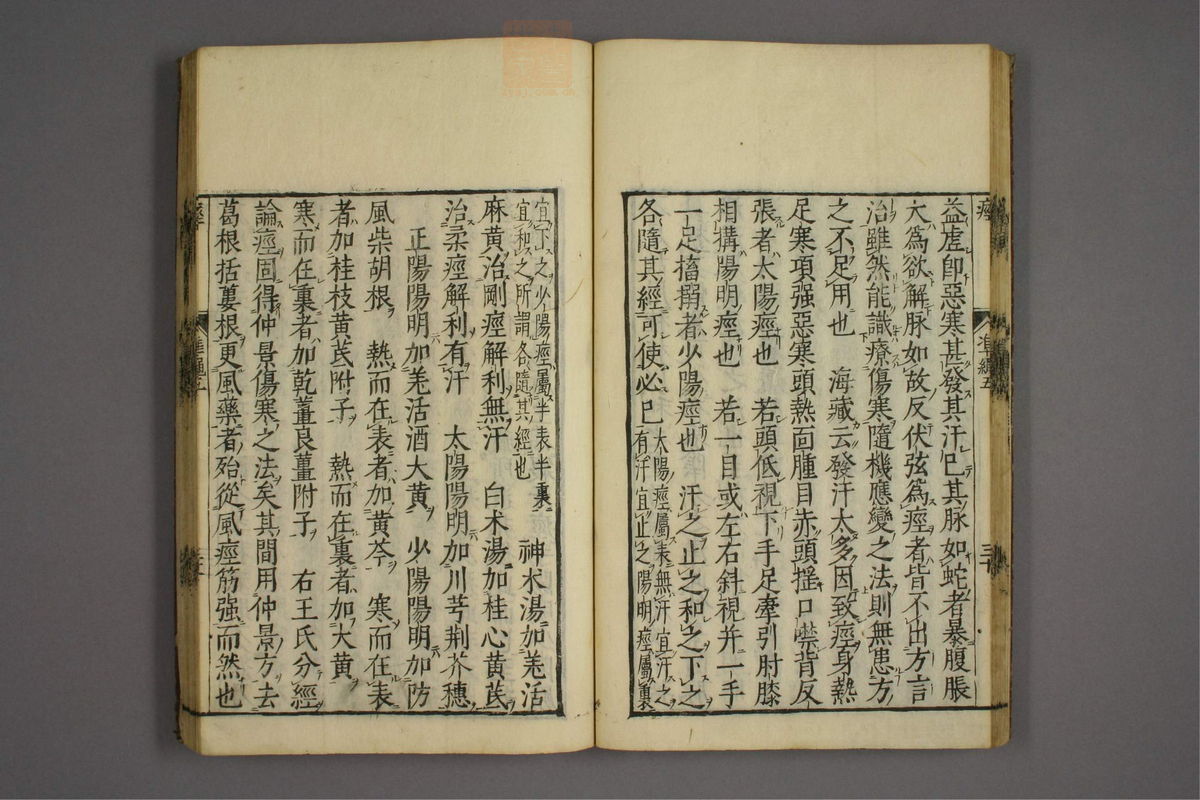 痙
準繩五
三十
益虛卽惡寒甚發其汗已其脉如蛇者暴腹脹
大爲欲解脉如故反伏弦爲痙者皆不出方言
治雖然能識療傷寒隨機應變之法則無患方
之不足用也 海藏云發汗太多因致痙身熱
足寒項强惡寒頭熱面腫目赤頭搖口噤背反
張者太陽痙也 若頭低視下手足牽引肘膝
相搆陽明痙也 若一目或左右斜視并一手
一足搐搦者少陽痙也 汗之止之和之下之
各隨其經可使必已太陽痙屬表無汗宜汗之
有汗宜止之陽明痙屬裏
宜下之少陽痙屬半表半裏
宜和之所謂各隨其經也
神术湯加羗活
麻黃治剛痙解利無汗 白术湯加桂心黃芪
治柔痙解利有汗 太陽陽明加川芎荆芥穗
正陽陽明加羗活酒大黃 少陽陽明加防
風柴胡根 熱而在表者加黃芩 寒而在表
者加桂枝黃芪附子 熱而在裏者加大黃
寒而在裏者加乾薑良薑附子 右王氏分經
論痙固得仲景傷寒之法矣其間用仲景方去
葛根括蔞根更風藥者殆從風痙筋强而然也
準繩五